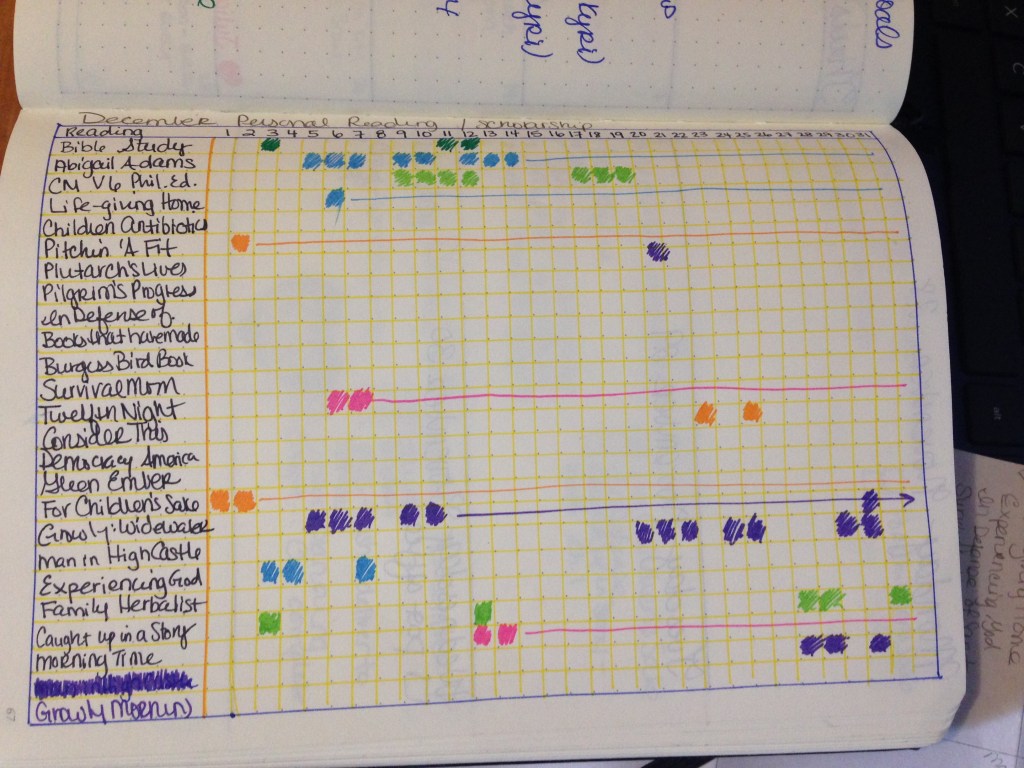 oals
4
(ypi)
(ypi)
December Personal Reading / Scholarship
Reading 1 2 3 4 5 6 7 8 9 10 11 12 13 14 15 16 17 18 19 20 21 22 23 24 25 26 27 28 29 30 31
Bible Study
Abigail Adams
CM V6 Phil. Ed.
Life-giving Home
Children Antibiotics
Pitchin' A Fit
Plutarch's Lives
Pilgrim's Progress
In Defense of
Books that have made
Burgess Bird Book
Survival Mom
Twelfth Night
Consider This
Democracy America
Green Ember
For Children's Sake
Growly: Widewater
Man in High Castle
Experiencing God
Family Herbalist
Caught up in a Story
Morning Time
Growly Morning
67